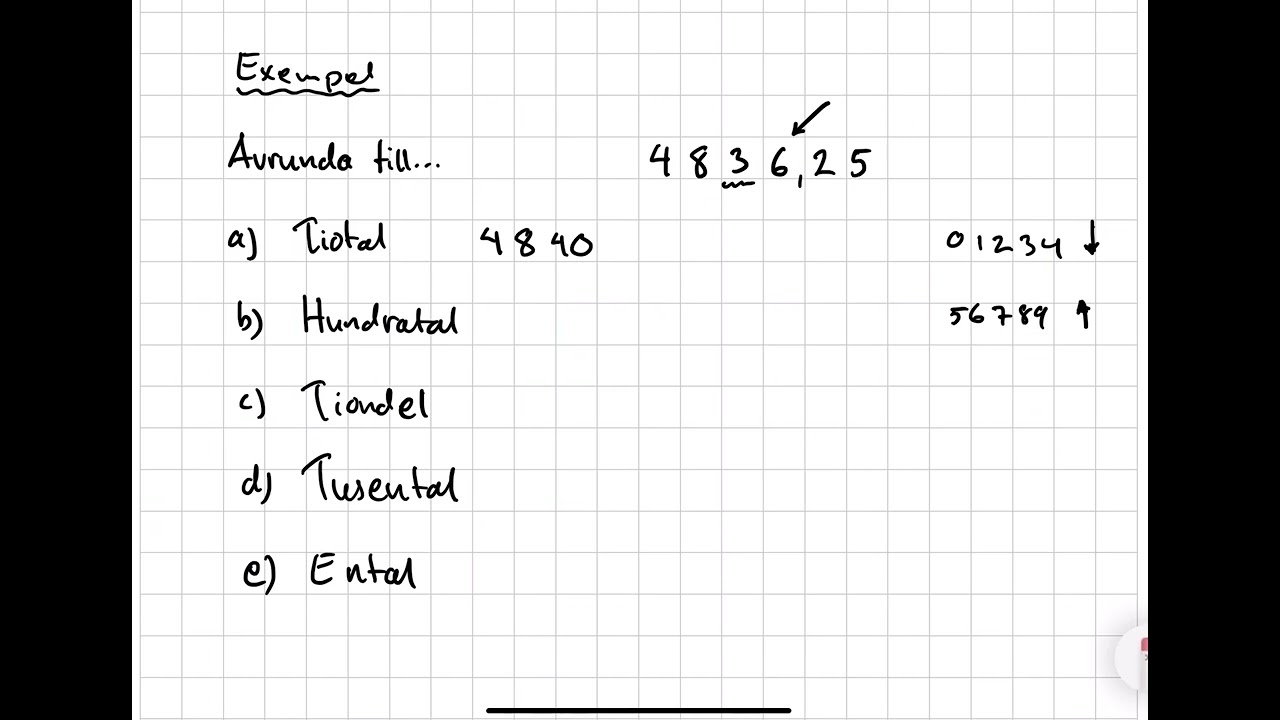 Exempel
Avrunda till... 4 8 3 6,2 5
a) Tiotal 4840 0 1 2 3 4 ↓
b) Hundratal 5 6 7 8 9 ↑
c) Tiondel
d) Tusental
e) Ental